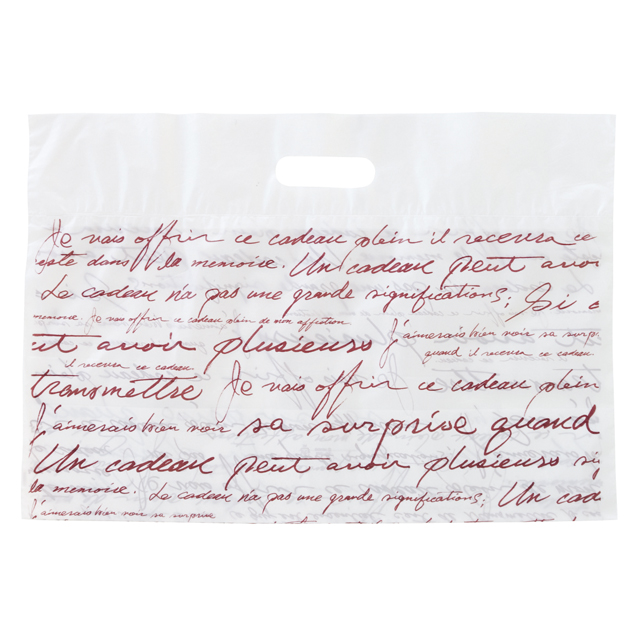 Je vais offrir ce cadeau plein il recevra ce
reste dans la memoire. Un cadeau peut avoi
Le cadeau n'a pas une grande significations; Si c
memoire. Je vais offrir ce cadeau plein de mon affection
ut avoir plusieurs J'aimerais bien voir sa surp
quand il recevra ce cadeau.
il recevra ce cadeau.
transmettre Je vais offrir ce cadeau plein
J'aimerais bien voir sa surprise quand
Un cadeau peut avoir plusieurs si
la memoire. Le cadeau n'a pas une grande significations; Un cad
J'aimerais bien voir sa surprise